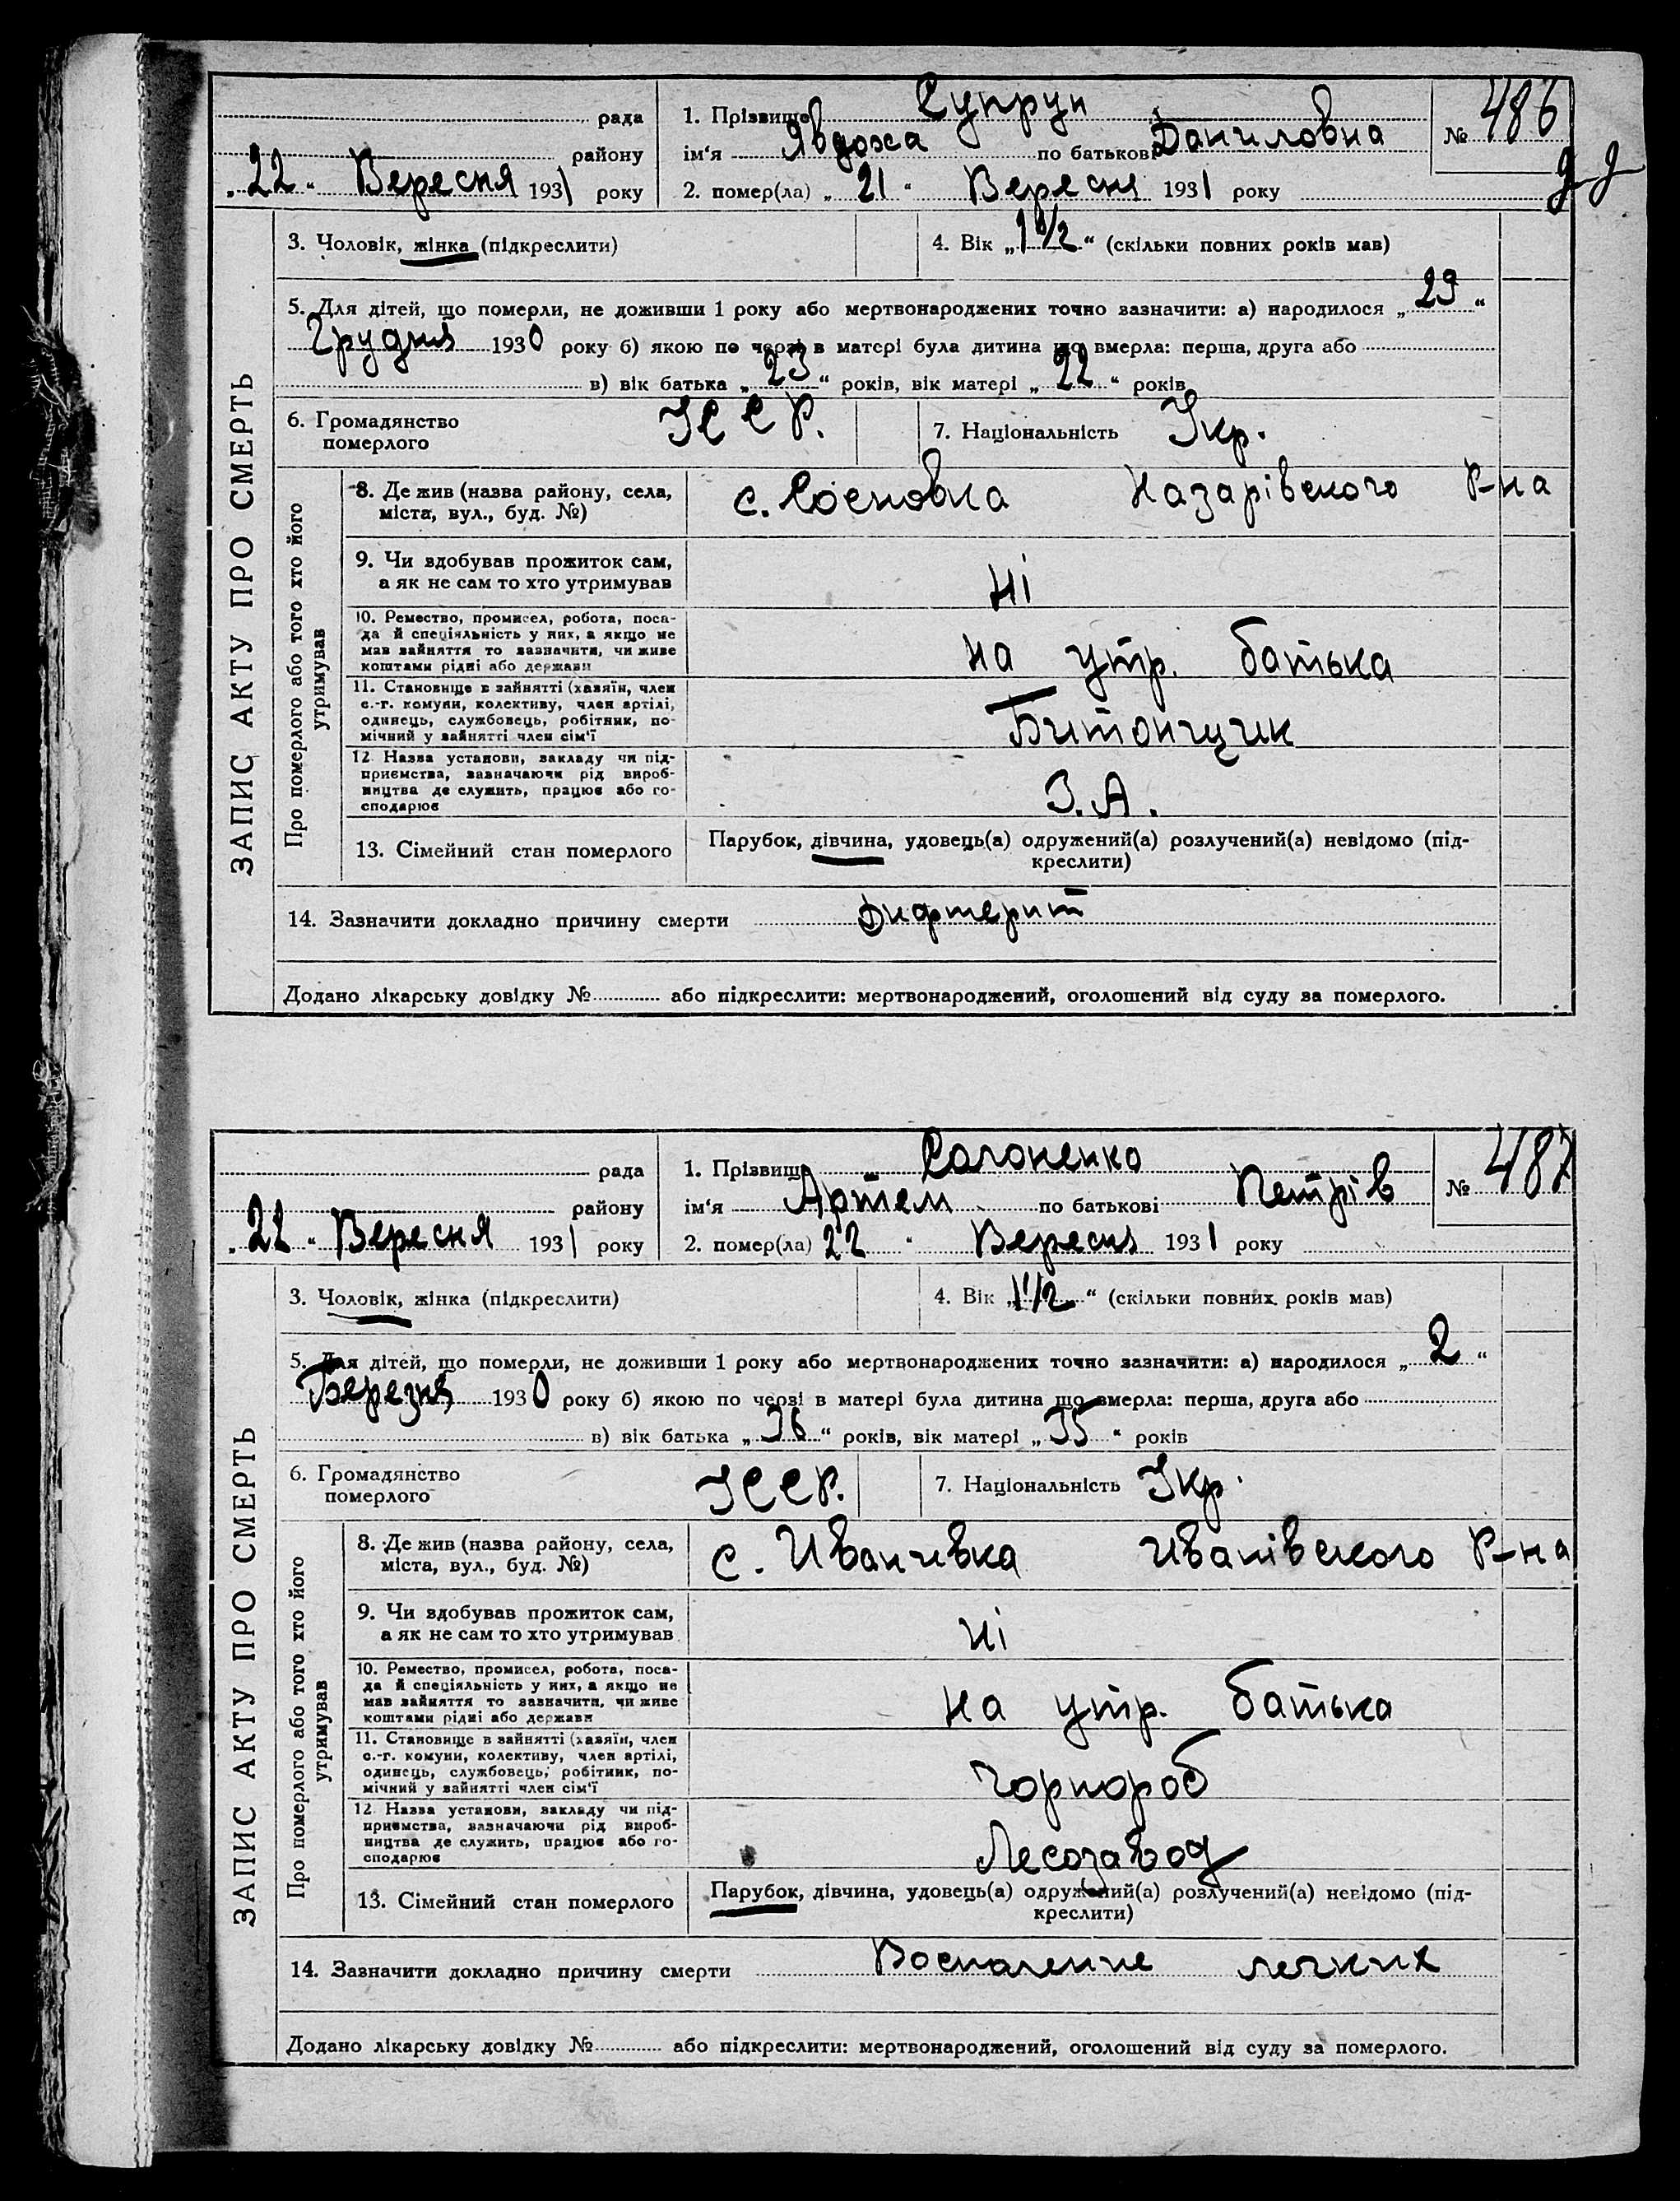 рада
району
„22“ Вересня 1931 року
1. Прізвище Супрун
ім‘я Явдоха по батькові Даниловна
2. помер(ла) „21“ Вересня 1931 року
№ 486
ЗАПИС АКТУ ПРО СМЕРТЬ
3. Чоловік, жінка (підкреслити)
4. Вік „1 1/2“ (скільки повних років мав)
5. Для дітей, що померли, не доживши 1 року або мертвонароджених точно зазначити: а) народилося „29“
Грудня 1930 року б) якою по черзі в матері була дитина що вмерла: перша, друга або
в) вік батька „23“ років, вік матері „22“ років
6. Громадянство
померлого
УССР.
7. Національність Укр.
Про померлого або того хто його
утримував
8. Де жив (назва району, села,
міста, вул., буд. №)
с. Сосновка Назарівского Р-на
9. Чи вдобував прожиток сам,
а як не сам то хто утримував
Ні
10. Ремество, промисел, робота, поса-
да й спеціяльність у них, а якщо не
мав зайняття то зазначити, чи живе
коштами рідні або держави
на утр. батька
11. Становище в зайнятті (хазяїн, член
с.-г. комуни, колективу, член артілі,
одинець, службовець, робітник, по-
мічний у зайнятті член сім'ї
Битонщик
12. Назва установи, закладу чи під-
приємства, зазначаючи рід вироб-
ництва де служить, працює або го-
сподарює
З.А.
13. Сімейний стан померлого
Парубок, дівчина, удовець(а) одружений(а) розлучений(а) невідомо (під-
креслити)
14. Зазначити докладно причину смерти Дифтерит
Додано лікарську довідку № або підкреслити: мертвонароджений, оголошений від суду за померлого.
рада
району
„22“ Вересня 1931 року
1. Прізвище Солоненко
ім‘я Артем по батькові Петрів
2. помер(ла) 22“ Вересня 1931 року
№ 487
ЗАПИС АКТУ ПРО СМЕРТЬ
3. Чоловік, жінка (підкреслити)
4. Вік „1 1/2“ (скільки повних років мав)
5. Для дітей, що померли, не доживши 1 року або мертвонароджених точно зазначити: а) народилося „2“
Березня 1930 року б) якою по черзі в матері була дитина що вмерла: перша, друга або
в) вік батька „36“ років, вік матері „35“ років
6. Громадянство
померлого
УССР.
7. Національність Укр.
Про померлого або того хто його
утримував
8. Де жив (назва району, села,
міста, вул., буд. №)
с. Иванивка Иванівского Р-на
9. Чи вдобував прожиток сам,
а як не сам то хто утримував
Ні
10. Ремество, промисел, робота, поса-
да й спеціяльність у них, а якщо не
мав зайняття то зазначити, чи живе
коштами рідні або держави
на утр. батька
11. Становище в зайнятті (хазяїн, член
с.-г. комуни, колективу, член артілі,
одинець, службовець, робітник, по-
мічний у зайнятті член сім'ї
Чорнороб
12. Назва установи, закладу чи під-
приємства, зазначаючи рід вироб-
ництва де служить, працює або го-
сподарює
Лесозавод
13. Сімейний стан померлого
Парубок, дівчина, удовець(а) одружений(а) розлучений(а) невідомо (під-
креслити)
14. Зазначити докладно причину смерти Воспаление легких
Додано лікарську довідку № або підкреслити: мертвонароджений, оголошений від суду за померлого.